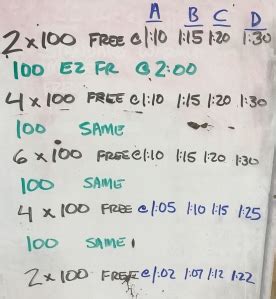 A B C D
2 x 100 FREE @ 1:10 1:15 1:20 1:30
100 EZ FR @ 2:00
4 x 100 FREE @ 1:10 1:15 1:20 1:30
100 SAME
6 x 100 FREE @ 1:10 1:15 1:20 1:30
100 SAME
4 x 100 FREE @ 1:05 1:10 1:15 1:25
100 SAME
2 x 100 FREE @ 1:02 1:07 1:12 1:22